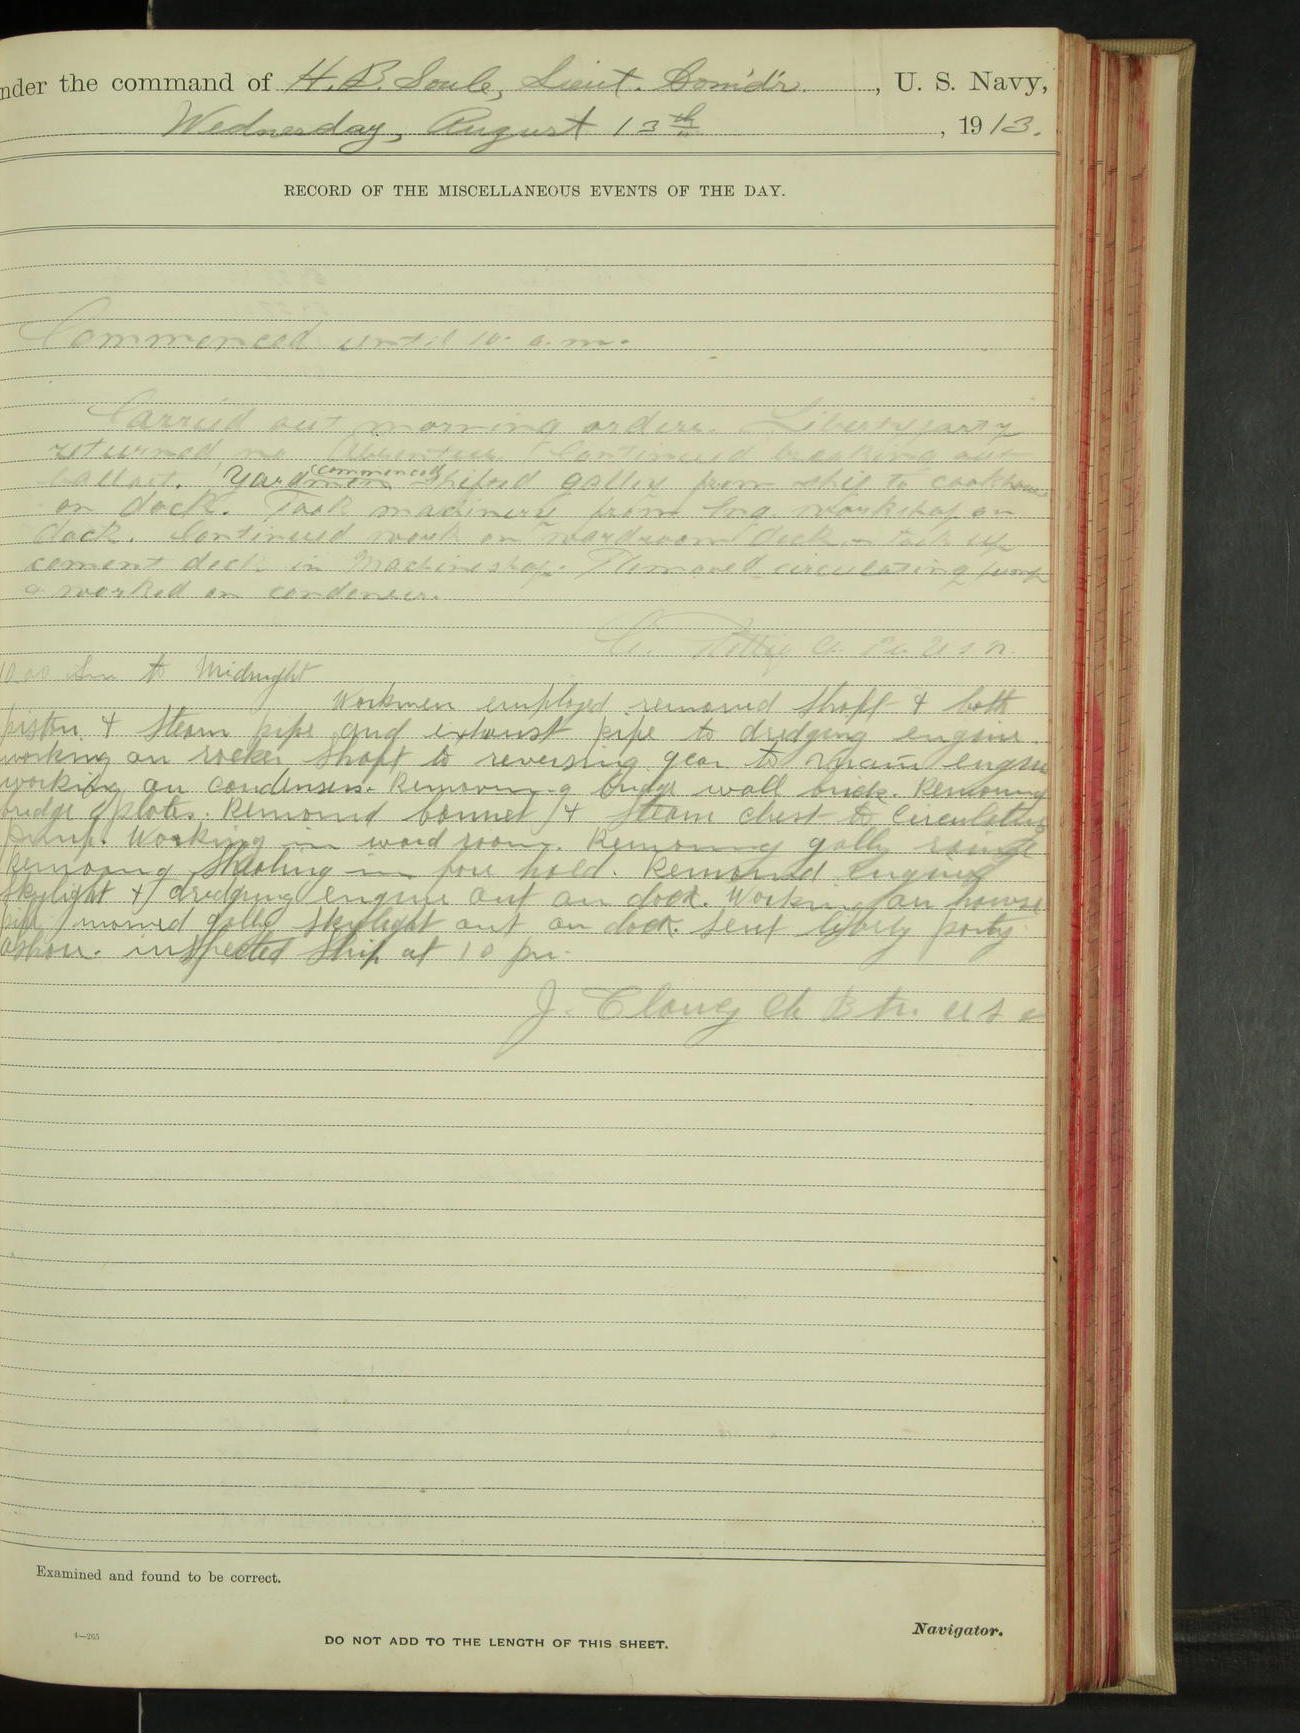 nder the command of H. B. Soule, Lieut. Comd'r. , U. S. Navy,
Wednesday, August 13th , 1913.
RECORD OF THE MISCELLANEOUS EVENTS OF THE DAY.
Commenced until 10. a.m.
Carried out morning orders. Liberty party
returned no Absentees. Continued breaking out
ballast. Yardmen commenced shifted galley from ship to cookhouse
on dock. Took machinery from Eng. workshop on
dock. Continued work on wardroom deck & took up
cement deck in Machineshop. Removed circulating pump
& worked on condenser.
U S N.
to Midnight
Workmen employed removed shaft & both
piston & steam pipe and exhaust pipe to dredging engine.
working on rocker shaft to reversing gear to main engine
working on condenser. Removing bridge wall brick. Removing
bridge plates. Removed bonnet & steam chest to Circulating
pump. Working in ward room. Removing gally range
Removing sheating in fore hold. Removed Engine
skylight & dredging engine out on dock. Working on howse
pipe moved gally skylight out on dock. Sent liberty party
ashore. inspected ship at 10 pm.
J. Clancy Ch Btn. U S N
Examined and found to be correct.
4—265
DO NOT ADD TO THE LENGTH OF THIS SHEET.
Navigator.